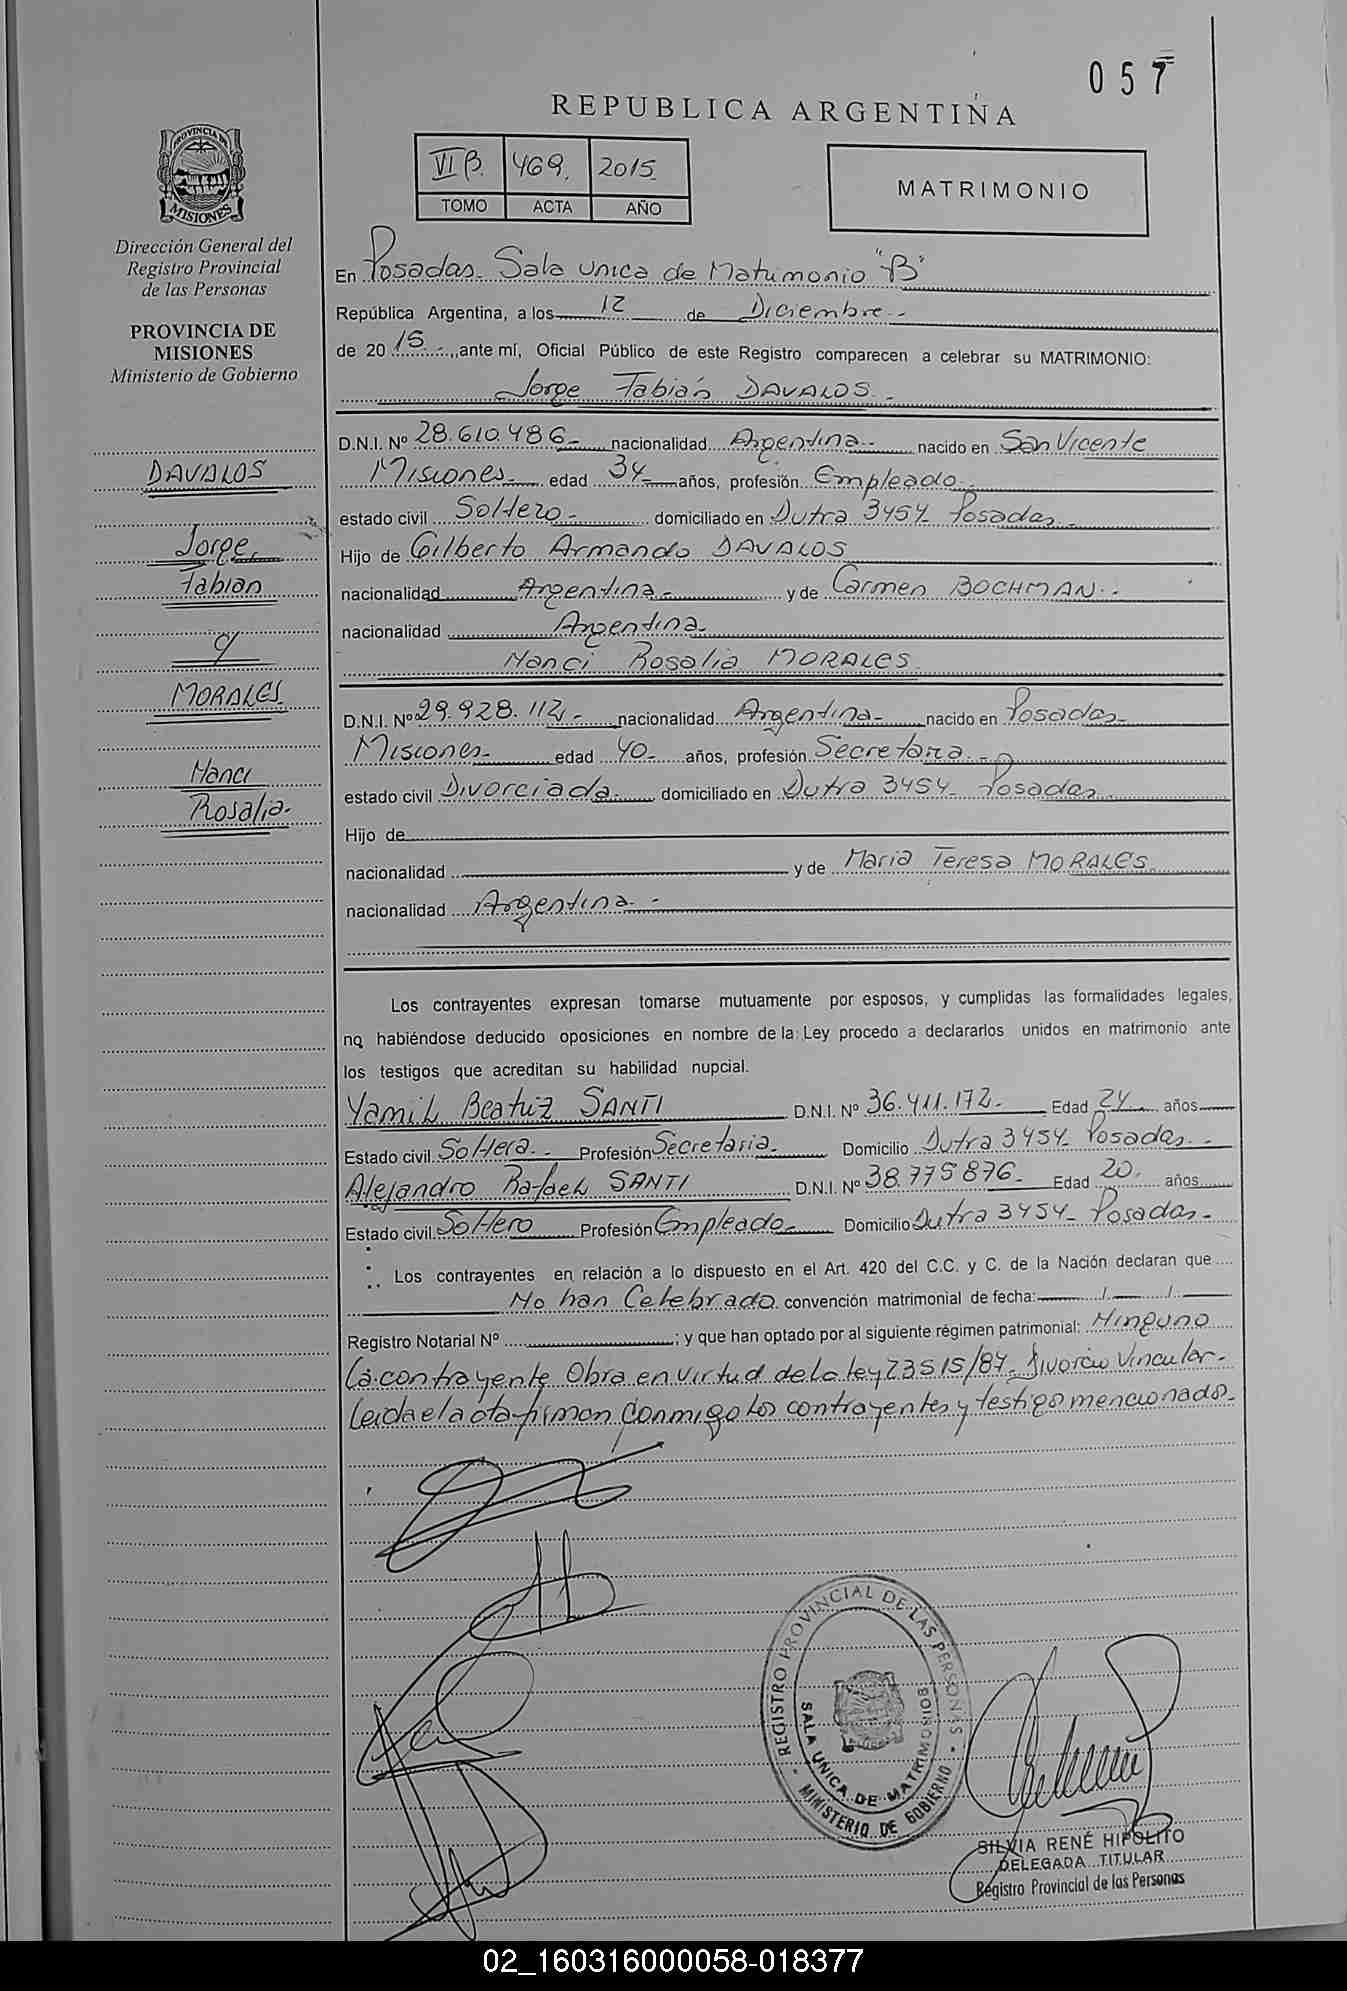 057
REPUBLICA ARGENTINA
PROVINCIA DE
MISIONES
VI B. 469. 2015
TOMO ACTA AÑO
MATRIMONIO
Dirección General del
Registro Provincial
de las Personas
PROVINCIA DE
MISIONES
Ministerio de Gobierno
DAVALOS
Jorge
Fabian
y
MORALES
Nanci
Rosalia.
En Posadas- Sala unica de Matrimonio "B"
República Argentina, a los 12 de Diciembre-
de 20 15-, ante mí, Oficial Público de este Registro comparecen a celebrar su MATRIMONIO:
Jorge Fabián DAVALOS.-
D.N.I. Nº 28.610.486- nacionalidad Argentina- nacido en San Vicente
Misiones- edad 34- años, profesión Empleado-
estado civil Soltero- domiciliado en Dutra 3454- Posadas-
Hijo de Gilberto Armando DAVALOS
nacionalidad Argentina- y de Carmen BOCHMAN.-
nacionalidad Argentina-
Nanci Rosalia MORALES
D.N.I. Nº 29.928.112- nacionalidad Argentina- nacido en Posadas-
Misiones- edad 40- años, profesión Secretaria.-
estado civil Divorciada- domiciliado en Dutra 3454- Posadas-
Hijo de
nacionalidad y de Maria Teresa MORALES
nacionalidad Argentina.-
Los contrayentes expresan tomarse mutuamente por esposos, y cumplidas las formalidades legales,
no habiéndose deducido oposiciones en nombre de la Ley procedo a declararlos unidos en matrimonio ante
los testigos que acreditan su habilidad nupcial.
Yamil Beatriz SANTI D.N.I. Nº 36.411.172- Edad 24 años
Estado civil Soltera.- Profesión Secretaria- Domicilio Dutra 3454- Posadas.-
Alejandro Rafael SANTI D.N.I. Nº 38.775876- Edad 20. años
Estado civil Soltero Profesión Empleado- Domicilio Dutra 3454- Posadas-
Los contrayentes en relación a lo dispuesto en el Art. 420 del C.C. y C. de la Nación declaran que
No han Celebrado convención matrimonial de fecha: / /
Registro Notarial Nº ; y que han optado por al siguiente régimen patrimonial: Ninguno
La contrayente Obra en virtud de la ley 23515/87- Divorcio Vincular-
Leida el acta firman Conmigo los contrayentes y testigos mencionado-
REGISTRO PROVINCIAL DE LAS PERSONAS
SALA UNICA DE MATRIMONIOS
MINISTERIO DE GOBIERNO
SILVIA RENÉ HIPOLITO
DELEGADA TITULAR
Registro Provincial de las Personas
02_160316000058-018377